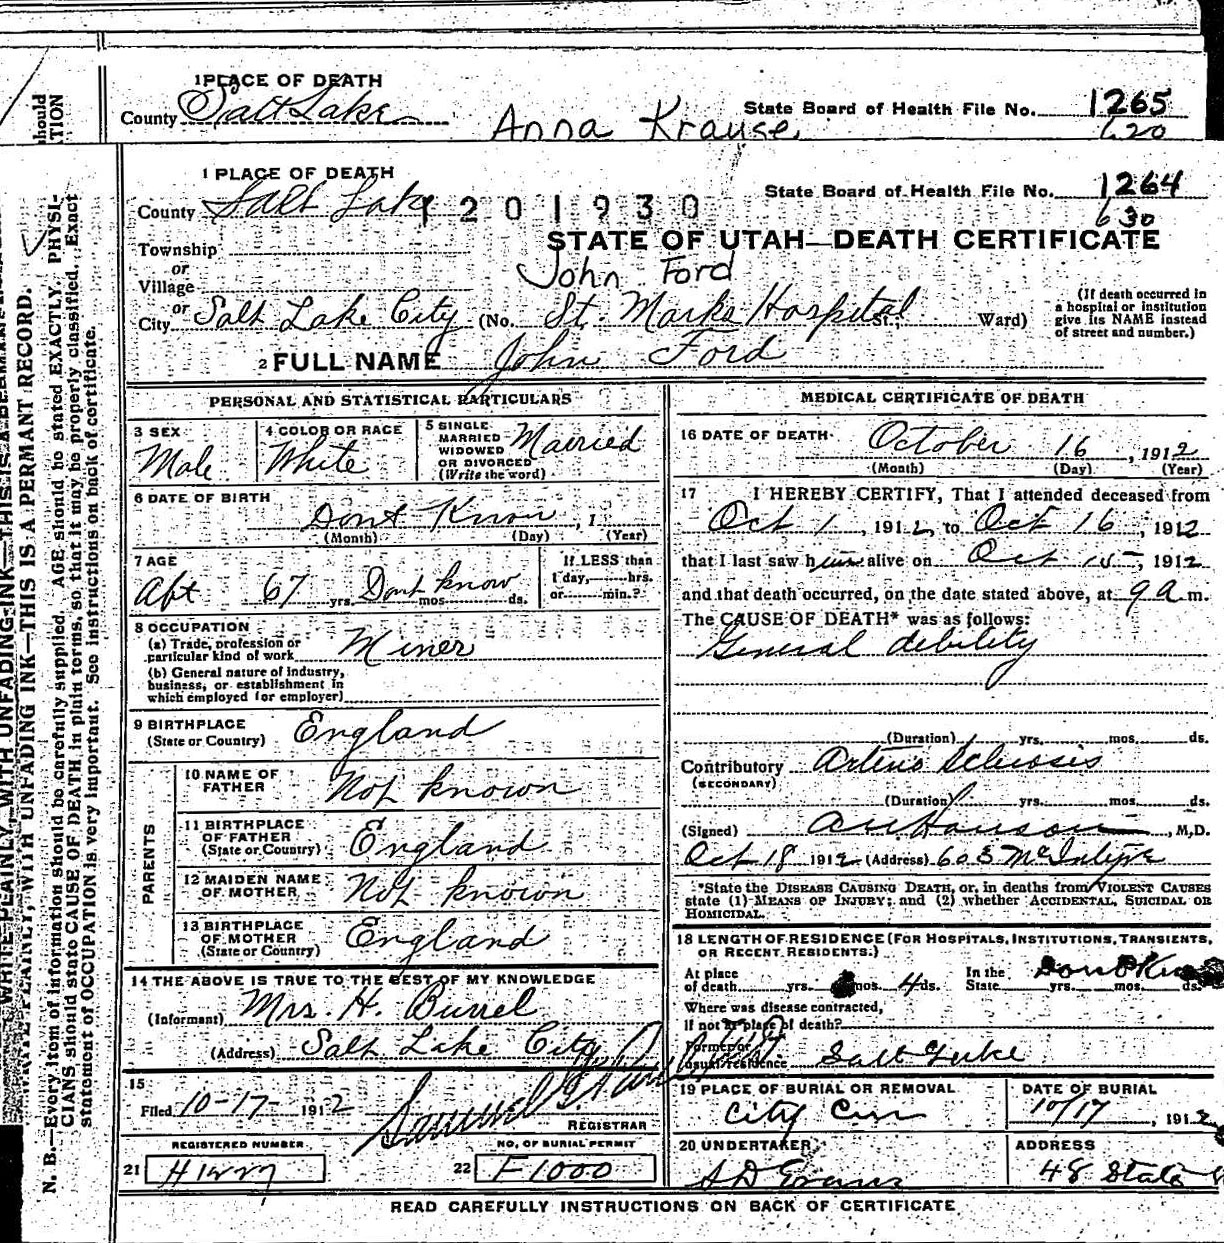 1 PLACE OF DEATH
County Salt Lake
Anna Krause
State Board of Health File No. 1265
620
1 PLACE OF DEATH
County Salt Lake 1201930
State Board of Health File No. 1264
630
STATE OF UTAH—DEATH CERTIFICATE
Township
or
Village
John Ford
or
City Salt Lake City (No. St. Marks Hospital St.; Ward)
(If death occurred in
a hospital or institution
give its NAME instead
of street and number.)
2 FULL NAME John Ford
PERSONAL AND STATISTICAL PARTICULARS
3 SEX
Male
4 COLOR OR RACE
White
5 SINGLE
MARRIED
WIDOWED
OR DIVORCED
(Write the word)
Married
6 DATE OF BIRTH
Dont Know , 1
(Month) (Day) (Year)
7 AGE
Abt 67 yrs. Dont know mos. ds.
If LESS than
1 day, hrs.
or min.?
8 OCCUPATION
(a) Trade, profession or
particular kind of work Miner
(b) General nature of industry,
business, or establishment in
which employed (or employer)
9 BIRTHPLACE
(State or Country) England
PARENTS
10 NAME OF
FATHER Not known
11 BIRTHPLACE
OF FATHER
(State or Country) England
12 MAIDEN NAME
OF MOTHER Not known
13 BIRTHPLACE
OF MOTHER
(State or Country) England
14 THE ABOVE IS TRUE TO THE BEST OF MY KNOWLEDGE
(Informant) Mrs. H. Burrel
(Address) Salt Lake City
15
Filed 10-17- 1912 Samuel G.
REGISTRAR
REGISTERED NUMBER
21
NO. OF BURIAL PERMIT
22 F1000
MEDICAL CERTIFICATE OF DEATH
16 DATE OF DEATH October 16, 1912
(Month) (Day) (Year)
17 I HEREBY CERTIFY, That I attended deceased from
Oct 1, 1912, to Oct 16, 1912
that I last saw him alive on Oct 15, 1912
and that death occurred, on the date stated above, at 9 a m.
The CAUSE OF DEATH* was as follows:
General debility
(Duration) yrs. mos. ds.
Contributory Arterio Sclerosis
(SECONDARY)
(Duration) yrs. mos. ds.
(Signed) , M.D.
Oct 18 1912 (Address) 603 McIntyre
*State the DISEASE CAUSING DEATH, or, in deaths from VIOLENT CAUSES
state (1) MEANS OF INJURY; and (2) whether ACCIDENTAL, SUICIDAL OR
HOMICIDAL.
18 LENGTH OF RESIDENCE (FOR HOSPITALS, INSTITUTIONS, TRANSIENTS,
OR RECENT RESIDENTS.)
At place
of death yrs. mos. 4 ds.
In the
State yrs. mos. ds.
Where was disease contracted,
if not at place of death?
Former or
usual residence Salt Lake
19 PLACE OF BURIAL OR REMOVAL
City Cem
DATE OF BURIAL
10/17, 1912
20 UNDERTAKER
S D Evans
ADDRESS
48 State
READ CAREFULLY INSTRUCTIONS ON BACK OF CERTIFICATE
WRITE PLAINLY, WITH UNFADING INK—THIS IS A PERMANT RECORD.
N. B.—Every item of information should be carefully supplied. AGE should be stated EXACTLY. PHYSI-
CIANS should state CAUSE OF DEATH in plain terms, so that it may be properly classified. Exact
statement of OCCUPATION is very important. See instructions on back of certificate.